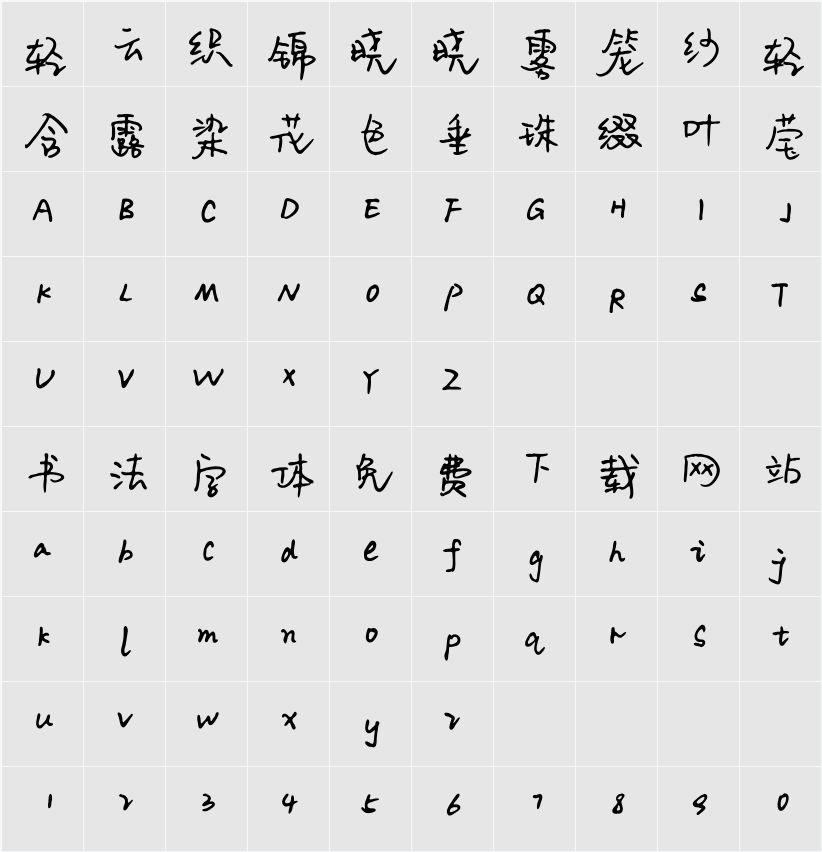 轻云织锦晓晓雾笼纱轻
含露染花色垂珠缀叶莹
A B C D E F G H I J
K L M N O P Q R S T
U V W X Y Z
书法字体免费下载网站
a b c d e f g h i j
k l m n o p q r s t
u v w x y z
1 2 3 4 5 6 7 8 9 0